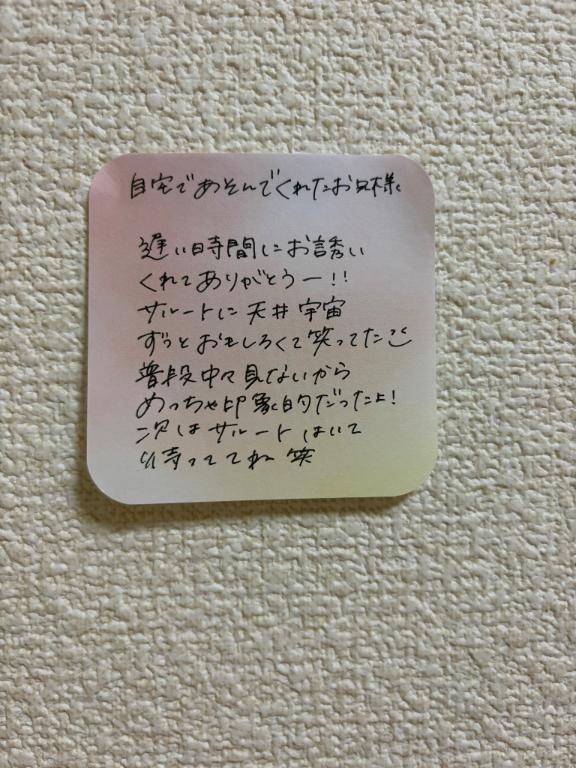 自宅であそんでくれたお兄様へ
遅い時間にお誘い
くれてありがとうー!!
サルートに天井宇宙
ずっとおもしろくて笑ってた
普段中々見ないから
めっちゃ印象的だったよ!
次はサルートはいて
待っててね 笑